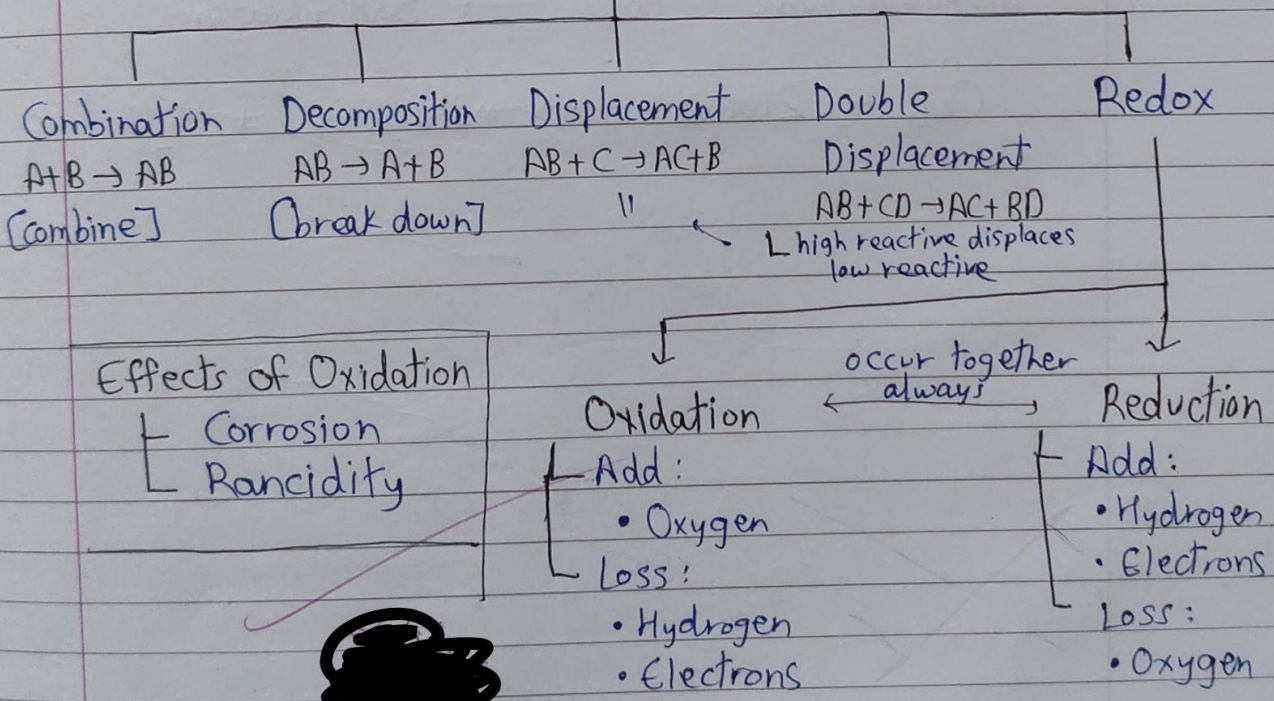 Combination
A+B → AB
[combine]
Decomposition
AB → A+B
[break down]
Displacement
AB+C → AC+B
"
Double
Displacement
AB+CD → AC+BD
high reactive displaces
low reactive
Redox
Effects of Oxidation
Corrosion
Rancidity
occur together
always
Oxidation
Add:
• Oxygen
Loss:
• Hydrogen
• Electrons
Reduction
Add:
• Hydrogen
• Electrons
Loss:
• Oxygen